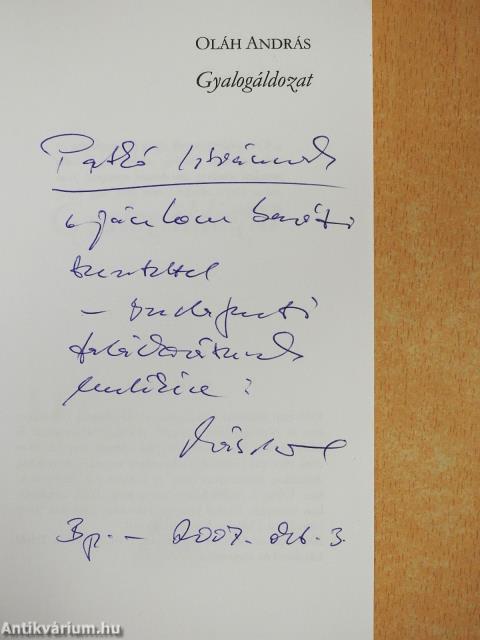 OLÁH ANDRÁS
Gyalogáldozat
Patkó Istvánnak
ajánlom baráti
tisztelettel
– budapesti
találkozásunk
emlékére:
Bp. – 2007. okt. 3.
Antikvárium.hu